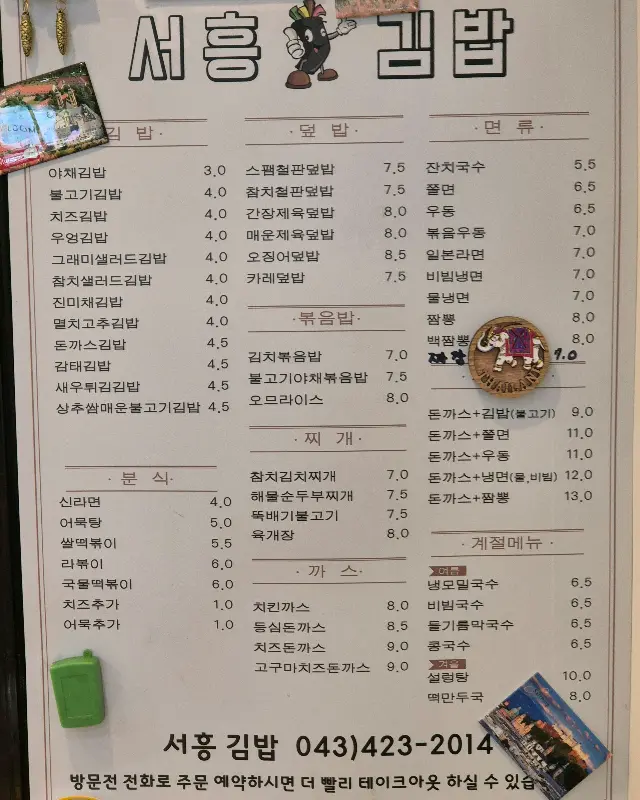 서흥 김밥
김 밥 ·
야채김밥 3.0
불고기김밥 4.0
치즈김밥 4.0
우엉김밥 4.0
그래미샐러드김밥 4.0
참치샐러드김밥 4.0
진미채김밥 4.0
멸치고추김밥 4.0
돈까스김밥 4.5
감태김밥 4.5
새우튀김김밥 4.5
상추쌈매운불고기김밥 4.5
· 분 식 ·
신라면 4.0
어묵탕 5.0
쌀떡볶이 5.5
라볶이 6.0
국물떡볶이 6.0
치즈추가 1.0
어묵추가 1.0
· 덮 밥 ·
스팸철판덮밥 7.5
참치철판덮밥 7.5
간장제육덮밥 8.0
매운제육덮밥 8.0
오징어덮밥 8.5
카레덮밥 7.5
· 볶음밥 ·
김치볶음밥 7.0
불고기야채볶음밥 7.5
오므라이스 8.0
· 찌 개 ·
참치김치찌개 7.0
해물순두부찌개 7.5
뚝배기불고기 7.5
육개장 8.0
· 까 스 ·
치킨까스 8.0
등심돈까스 8.5
치즈돈까스 9.0
고구마치즈돈까스 9.0
· 면 류 ·
잔치국수 5.5
쫄면 6.5
우동 6.5
볶음우동 7.0
일본라면 7.0
비빔냉면 7.0
물냉면 7.0
짬뽕 8.0
백짬뽕 8.0
짜장 7.0
돈까스+김밥(불고기) 9.0
돈까스+쫄면 11.0
돈까스+우동 11.0
돈까스+냉면(물,비빔) 12.0
돈까스+짬뽕 13.0
· 계절메뉴 ·
여름
냉모밀국수 6.5
비빔국수 6.5
들기름막국수 6.5
콩국수 6.5
겨울
설렁탕 10.0
떡만두국 8.0
서흥 김밥 043)423-2014
방문전 전화로 주문 예약하시면 더 빨리 테이크아웃 하실 수 있습